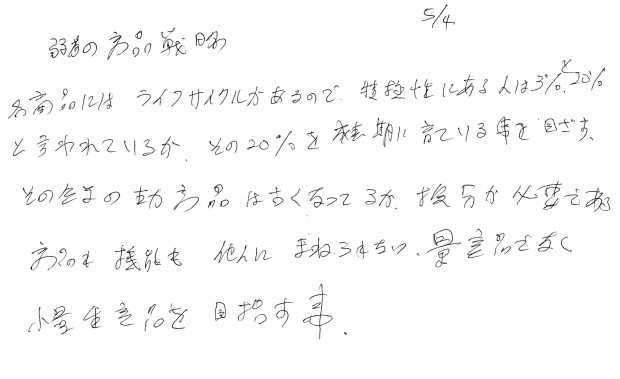 5/4
弱者の商品戦略
各商品には ライフサイクルがあるので、 積極性にある人は3%〜20%
と言われているが、その20%を 期に育ている事を目ざす。
その会社の主動商品は古くなってるか、 処分が必要である
商品も機能も 他人に まねられない、量産品でなく
小量生産品を 目指す事.